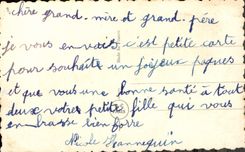 chère grand. mère et grand. père
je vous envois c'est petite carte
pour souhaite un joyeux paques
et que vous une bonne santé à tout
deux votre petite fille qui vous
embrasse bien forre
Nicole Hannequin